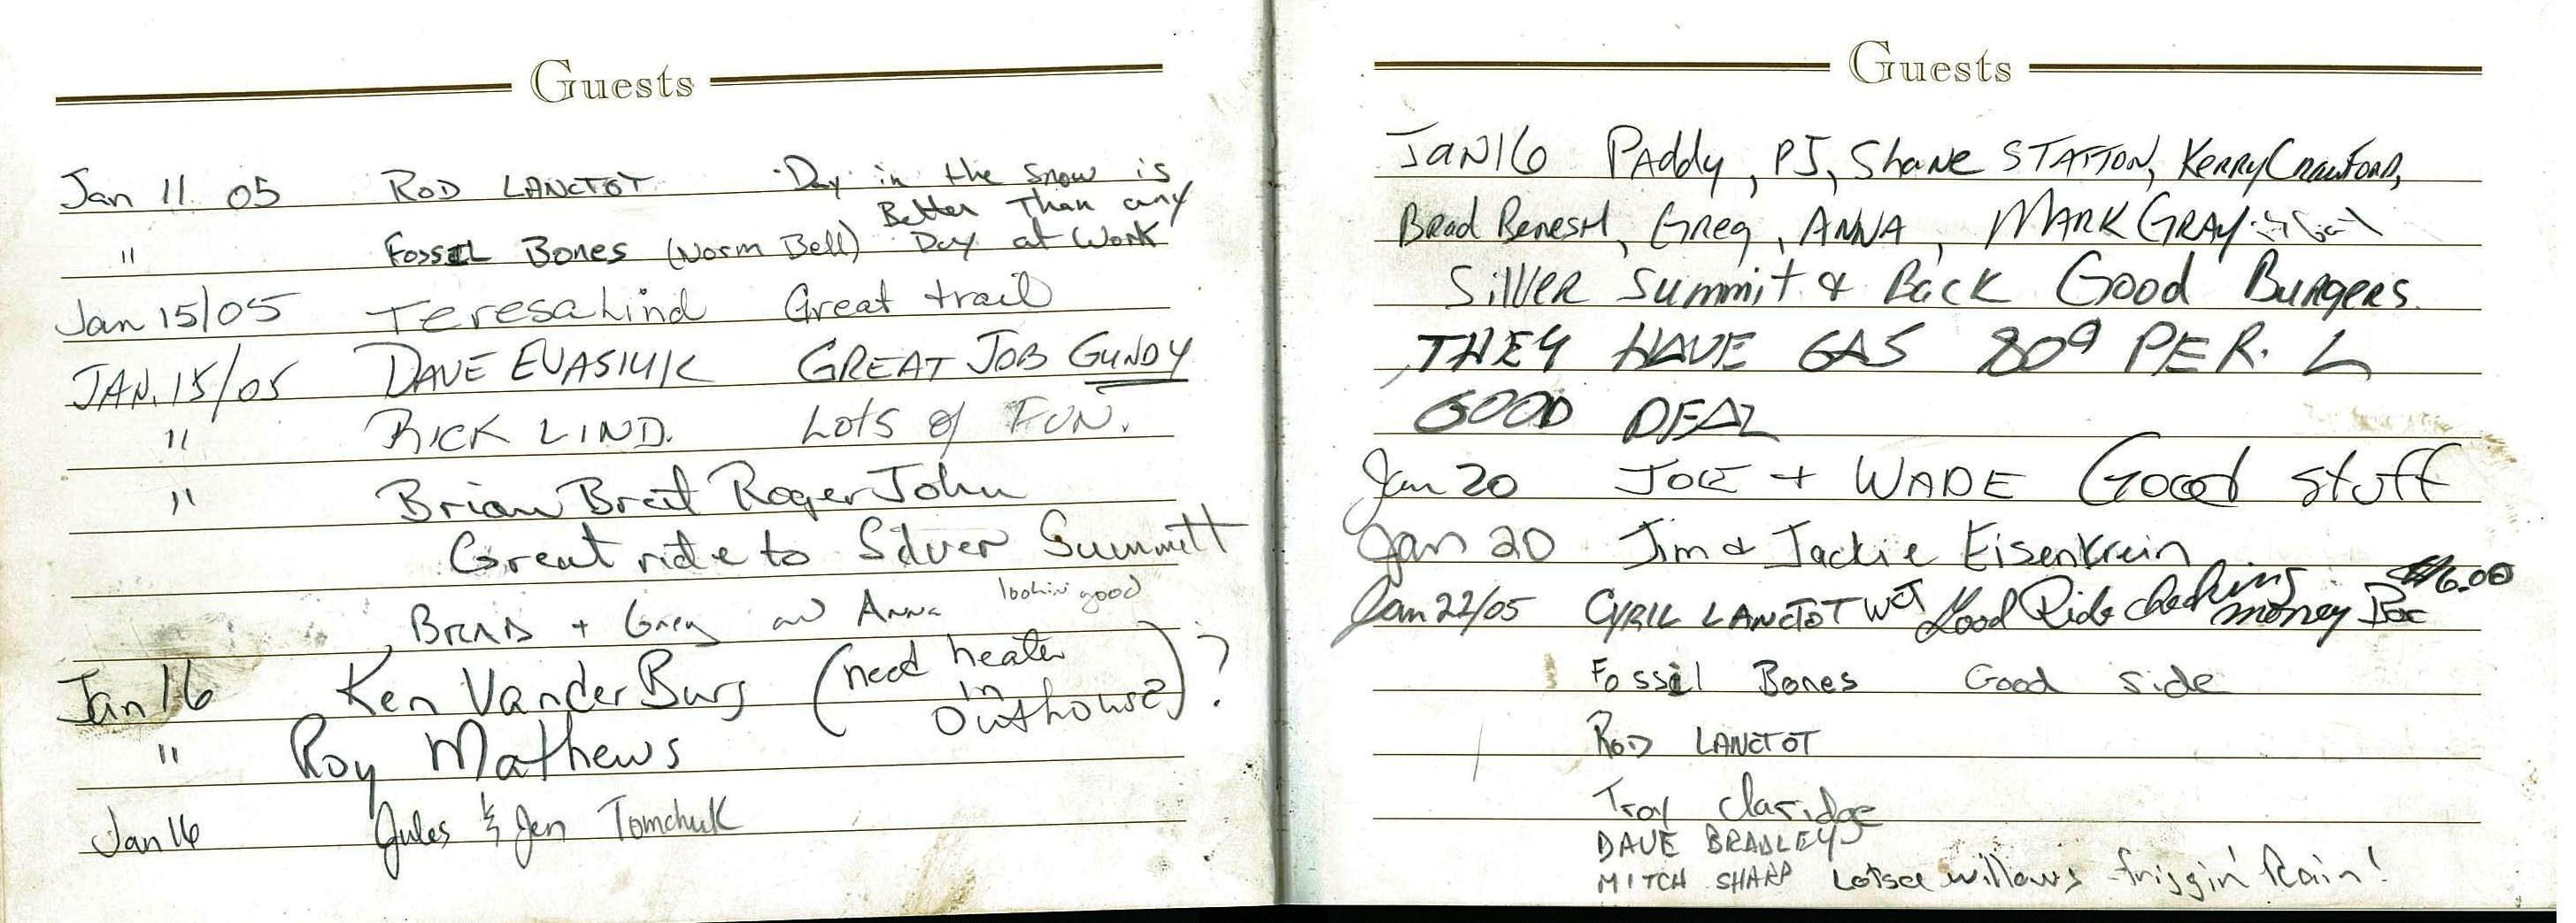 Guests
Jan 11 05 ROD LANCTOT Day in the snow is
Better Than any
" FOSSIL Bones (Norm Bell) Day at Work
Jan 15/05 Teresa Lind Great trail
JAN. 15/05 DAVE EVASIUK GREAT JOB GUNDY
" RICK LIND. Lots of FUN.
" Brian Bret Roger John
Great ride to Silver Summitt
lookin' good
BRAD + Greg and Anna
Jan 16 Ken VanderBurg (need heater
in
outhouse)?
" Roy Mathews
Jan 16 Jules & Jen Tomchuk
Guests
JAN 16 PAddy, PJ, Shane STATTON, KERRY CRAWFORD,
Brad Benesh, Greg, ANNA, MARK GRAY
SILVER Summit & Back Good Burgers.
THEY HAVE GAS 809 PER. L
GOOD DEAL
Jan 20 JOE + WADE Good stuff
Jan 20 Jim & Jackie Eisenkrein
Jan 22/05 CYRIL LANCTOT WCT Good Ride checking money Box $6.00
Fossil Bones Good ride
ROD LANCTOT
Troy Claridge
DAVE BRADLEY
MITCH SHARP Lotsa willows friggin' Rain!